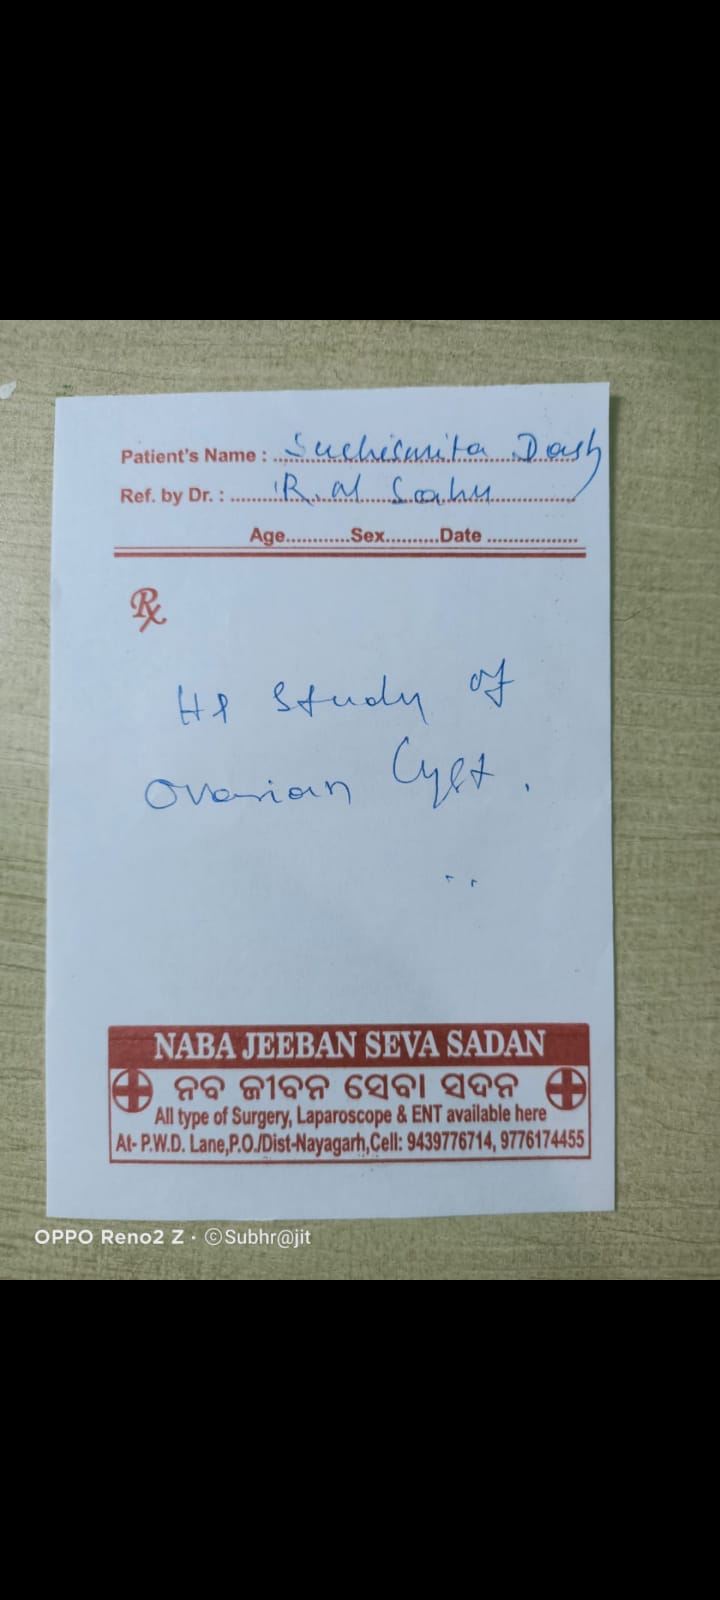 Patient's Name : Suchismita Dash
Ref. by Dr. : R. N Sahu
Age............Sex..........Date .................
Rx
HP Study of
Ovarian Cyst.
NABA JEEBAN SEVA SADAN
ନବ ଜୀବନ ସେବା ସଦନ
All type of Surgery, Laparoscope & ENT available here
At- P.W.D. Lane,P.O./Dist-Nayagarh,Cell: 9439776714, 9776174455
OPPO Reno2 Z · ©Subhr@jit